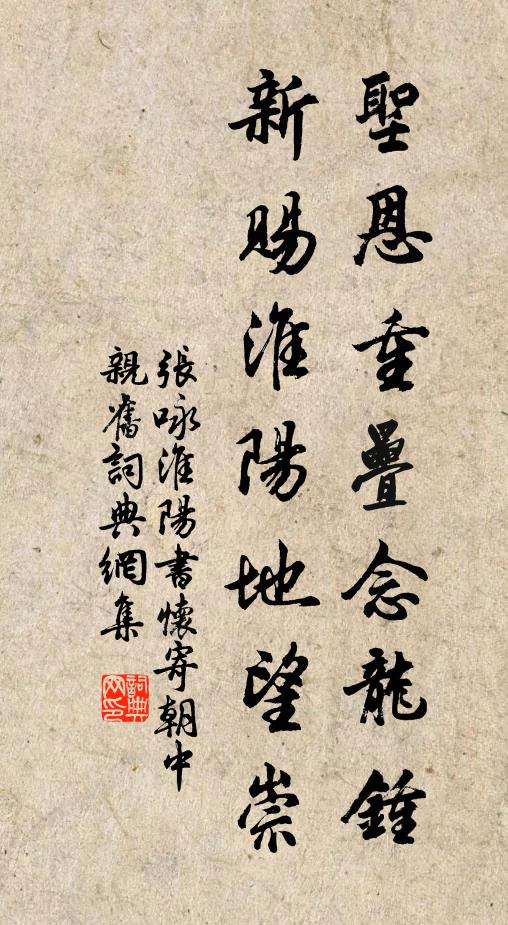 聖恩重疊念龍鍾
新賜淮陽地望崇
張咏淮陽書懷寄朝中
親舊詞典網集
詞典
网印